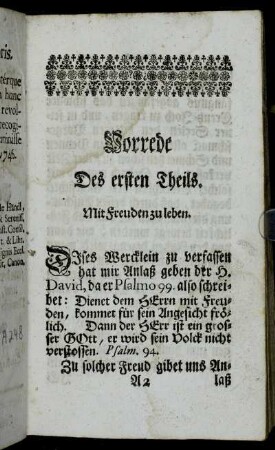 ris.
terque
hanc
revol-
recog-
1746.
& Serenif.
A 248
Vorrede
Des ersten Theils.
Mit Freuden zu leben.
DIses Wercklein zu verfassen
hat mir Anlaß geben der H.
David, da er Psalmo 99. also schrei-
bet: Dienet dem HErrn mit Freu-
den, kommet für sein Angesicht frö-
lich. Dann der HErr ist ein gros-
ser GOtt, er wird sein Volck nicht
verstossen. Psalm. 94.
Zu solcher Freud gibet uns An-
A2 laß